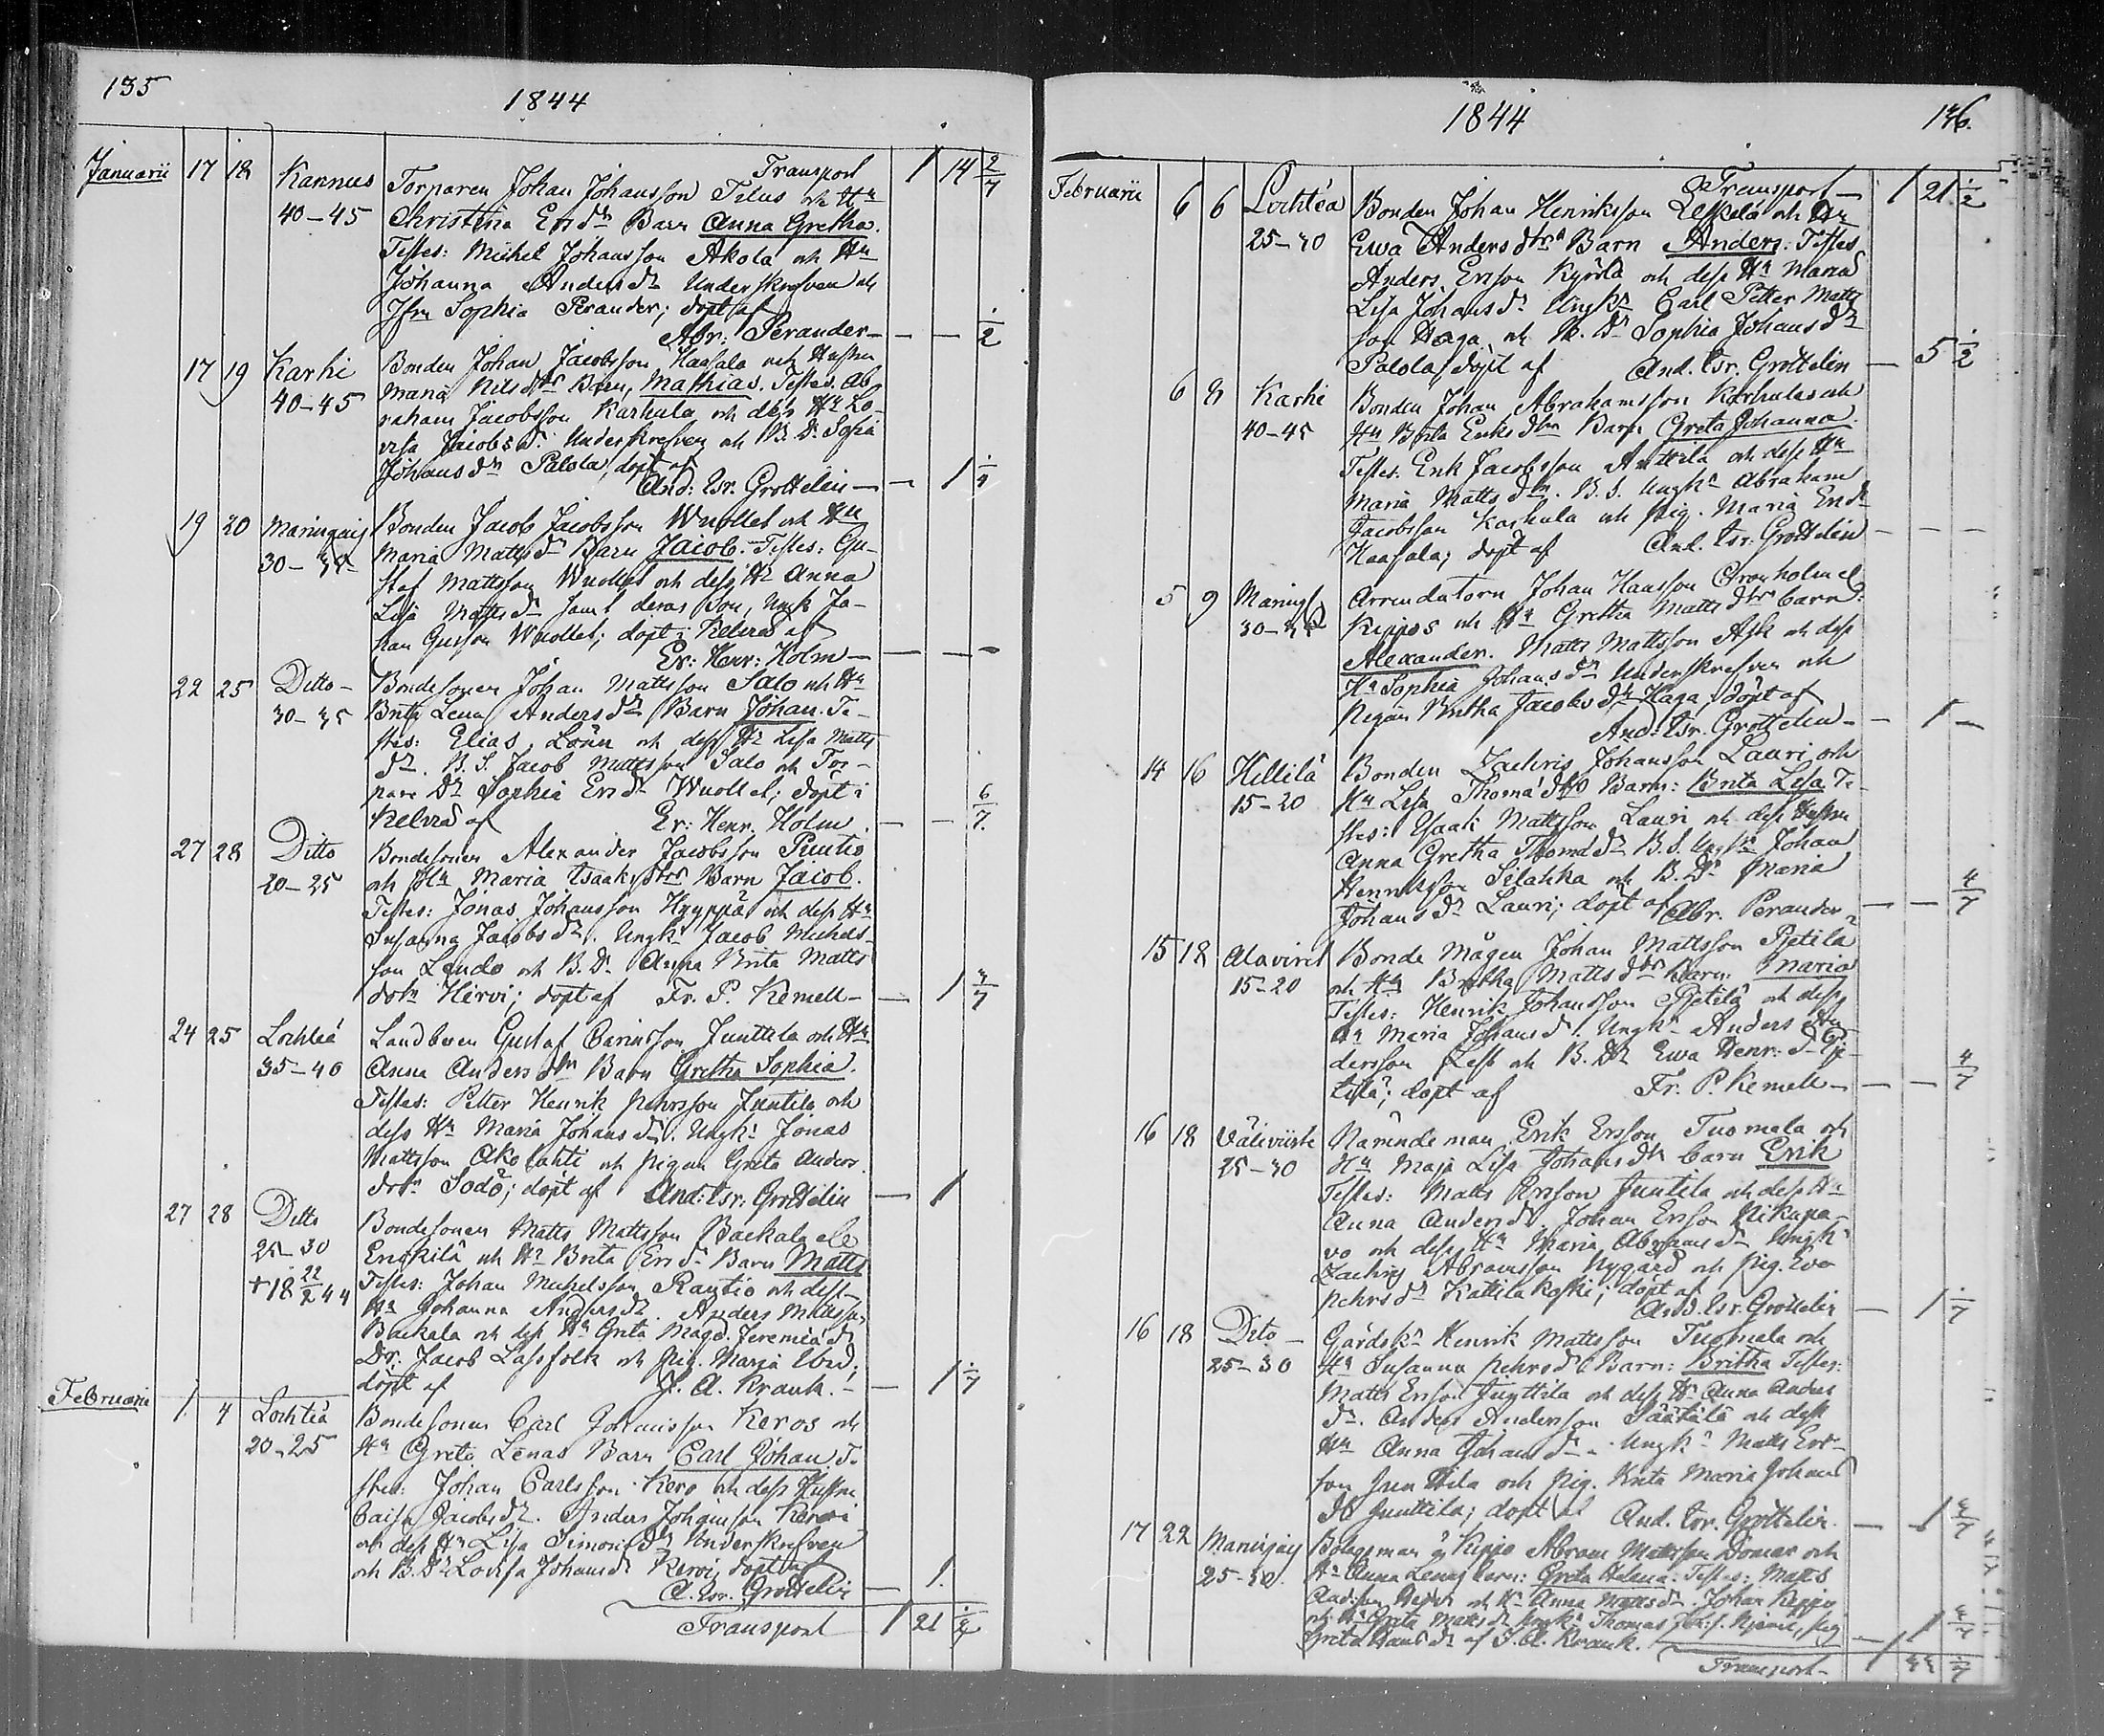 135
1844
Januarii 17 18 Kannus Transport 1 14 2/7
40-45 Torparen Johan Johansson Tilus och Hu
Christina Ersdr Barn Anna Gretha.
Testes: Michel Johansson Akola och Hu
Johanna Andersdr Underskrefven och
Jfru Sophia Perander; döpt af
Abr: Perander — — — 1/2
17 19 Karhi Bonden Johan Jacobsson Haasala och Hustru
40-45 Maria Nilsdtr Barn, Mathias. Testes. Ab
raham Jacobsson Karhula och dess Hu Lo-
visa Jacobsd. Underskrefven och B. Dr Sofia
Johansdr Palola, döpt af
And: Isr. Grottelin — — 1
19 20 Maringais Bonden Jacob Jacobsson Wuollet och Hu
30- Maria Mattsdr Barn Jacob. Testes: Gu-
staf Mattsson Wuollet och dess Hu Anna
Lisa Mattsdr samt deras Son, Ungk Jo-
han Gusson Wuollet; döpt i Kelviå af
Er: Henr: Holm — — — —
22 25 Ditto - Bondesonen Johan Mattsson Salo och Hu
30-35 Brita Lena Andersdr Barn Johan. Te-
stes: Elias Lönn och dess Hu Lisa Matts
dr. B. S. Jacob Mattsson Salo och Tor-
pare Dr Sophia Ersdr Wuollet; döpt i
Kelviå af Er: Henr. Holm. — — 6/7
27 28 Ditto Bondesonen Alexander Jacobsson Puutio
20-25 och Hu Maria Isaaksdtr Barn Jacob.
Testes: Jonas Johansson Hyyppä och dess Hu
Susanna Jacobsdr. Ungk. Jacob Michels-
son Lendo och B. Dr. Anna Brita Matts
dotr Hirvi; döpt af Fr. P. Kemell — — 1 3/7
24 25 Lochteå Landbonen Gustaf Carinsson Junttila och Hu
35-40 Anna Andersdtr Barn Gretha Sophia.
Testes: Petter Henrik Pehrsson Juntila och
dess Hu Maria Johansdr. Ungk: Jonas
Mattsson Ako lahti och pigan Greta Anders
dotr Södö; döpt af And: Isr: Grottelin — 1
27 28 Ditto Bondesonen Matts Mattsson Backala el.
25-30 Enskilä och Hu Brita Ersdr Barn Matts
+18 22/2 44 Testes: Johan Michelsson Rautio och dess
Hu Johanna Andersdr. Anders Mattsson
Backala och dess Hu Greta Magd. Jeremiædr
Dr: Jacob Lassfolk och Pig. Maria
döpt af J. A. Krank. — — 1 1/7
Februarii 1 4 Lochteå Bondesonen Carl Johansson Keros och
20-25 Hu Greta Lenas Barn Carl Johan. Te-
stes: Johan Carlsson Kero och dess Hustru
Caisa Jacobsdr. Anders Johansson Kervi
och dess Hu Lisa Simonsdr Underskrefven
och B. Dr Lovisa Johansdr Kervi, döpt af
A. Isr. Grottelin — 1.
Transport 1 21 1/2
1844
136.
Februarii 6 6 Lochteå Transport — 1 21 1/2
25-30 Bonden Johan Henriksson Leskelä och Hu
Ewa Andersdtrs Barn Anders: Testes
Anders Ersson Kyörlä och dess Hu Maria
Lisa Johansdr Ungkr Carl Petter Matts
son Haga, och B. Dr Sophia Johansdr
Palola, döpt af And. Isr. Grottelin — 5 1/2
6 8 Karhi Bonden Johan Abrahamsson Karhula och
40-45 Hu Brita Eriksdtr Barn Greta Johanna.
Testes. Erik Jacobsson Anttila och dess Hu
Maria Mattsdtr. B. S. Ungkr Abraham
Jacobsson Karhula och pig. Maria Ersdr
Haasala; döpt af And. Isr. Grottelin — — —
5 9 Maring Arrendatorn Johan Hansson Cronholm el
30-35 Kippos och Hu Gretha Mattsdtr barn:
Alexander. Matts Mattsson Ask och dess
Hu Sophia Johansdr Underskrefven och
Pigan Britha Jacobsdr Haga, döpt af
And. Isr. Grottelin — — 1 —
14 16 Hillilä Bonden Zachris Johansson Lauri och
15-20 Hu Lisa Thomædtrs Barn: Brita Lisa Te-
stes: Isaak Mattsson Lauri och dess Hustru
Anna Gretha Thomædr B. S. Ungkr Johan
Henriksson Silahka och B. Dr Maria
Johansdr Lauri; döpt af Abr. Perander — — 4/7
15 18 Alaviret Bonde Mågen Johan Mattsson Pjetilä
15-20 och Hu Britha Mattsdtr barn Maria
Testes: Henrik Johansson Pjetilä och dess
Hu Maria Johansdr. Ungkr Anders An-
dersson Less och B. Dr Ewa Henr: dr Pje-
tilä; döpt af Fr. P. Kemell — — — 4/7
16 18 Välivirte Nämndeman Erik Ersson Tuomala och
25-30 Hu Maja Lisa Johansdtr barn Erik
Testes: Matts Ersson Juntila och dess Hu
Anna Andersdr. Johan Ersson Nikupa-
vo och dess Hu Maria Abramsdr Ungkr
Zachris Abramsson Nygård och pig. Eva
Pehrsdr Kattilakoski; döpt af
And. Isr. Grottelin — 1 1/7
16 18 Dito — Gårdskn Henrik Mattsson Tuomala och
25-30 Hu Susanna Pehrsdr Barn: Britha Testes:
Matts Ersson Junttila och dess Hu Anna Anders
dr. Anders Andersson Säätälä och dess
Hu Anna Johansdr. Ungkr Matts Ers-
son Junttila och pig. Brita Maria Johans
dr Junttila; döpt af And. Isr. Grottelin. — 1 3/7
17 22 Maringais Bolagsman å Kippo Abram Mattsson Domar och
25-30. Hu Anna Lenas barn: Greta Helena. Testes: Matts
och Hu Anna Mattsdr. Johan Kippo
och Hu Greta Mattsdr Ungkr Thomas pig
Greta Hansdr af J. A. Krank. — 1 3/7
Transport — 1